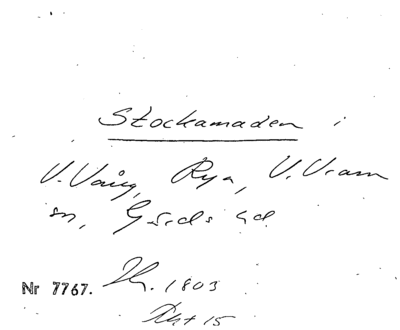 Stockamaden i
V. Vång, Rya, V. Vram
sn, Gärds hd.
Nr 7767. 1803